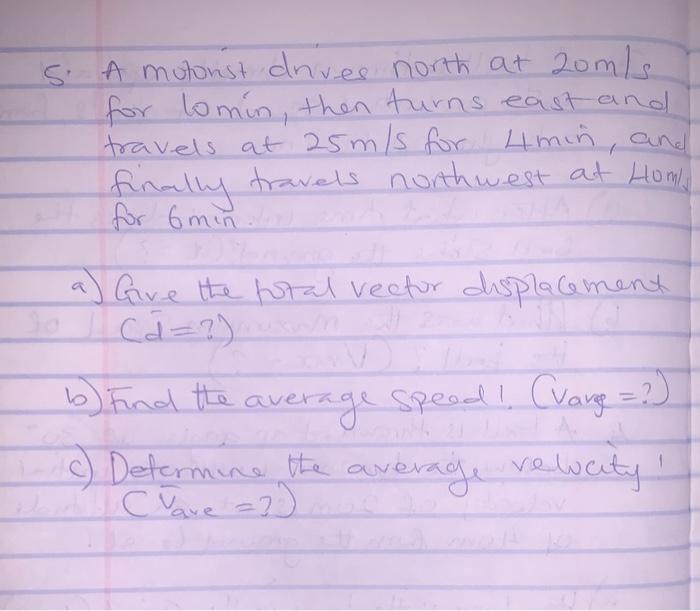 5. A motorist drives north at 20m/s
for 10min, then turns east and
travels at 25m/s for 4min, and
finally travels northwest at 40m/s
for 6min.
a) Give the total vector displacement
(d̄=?)
b) Find the average speed! (Varg=?)
c) Determine the average velocity!
(V̄ave=?)